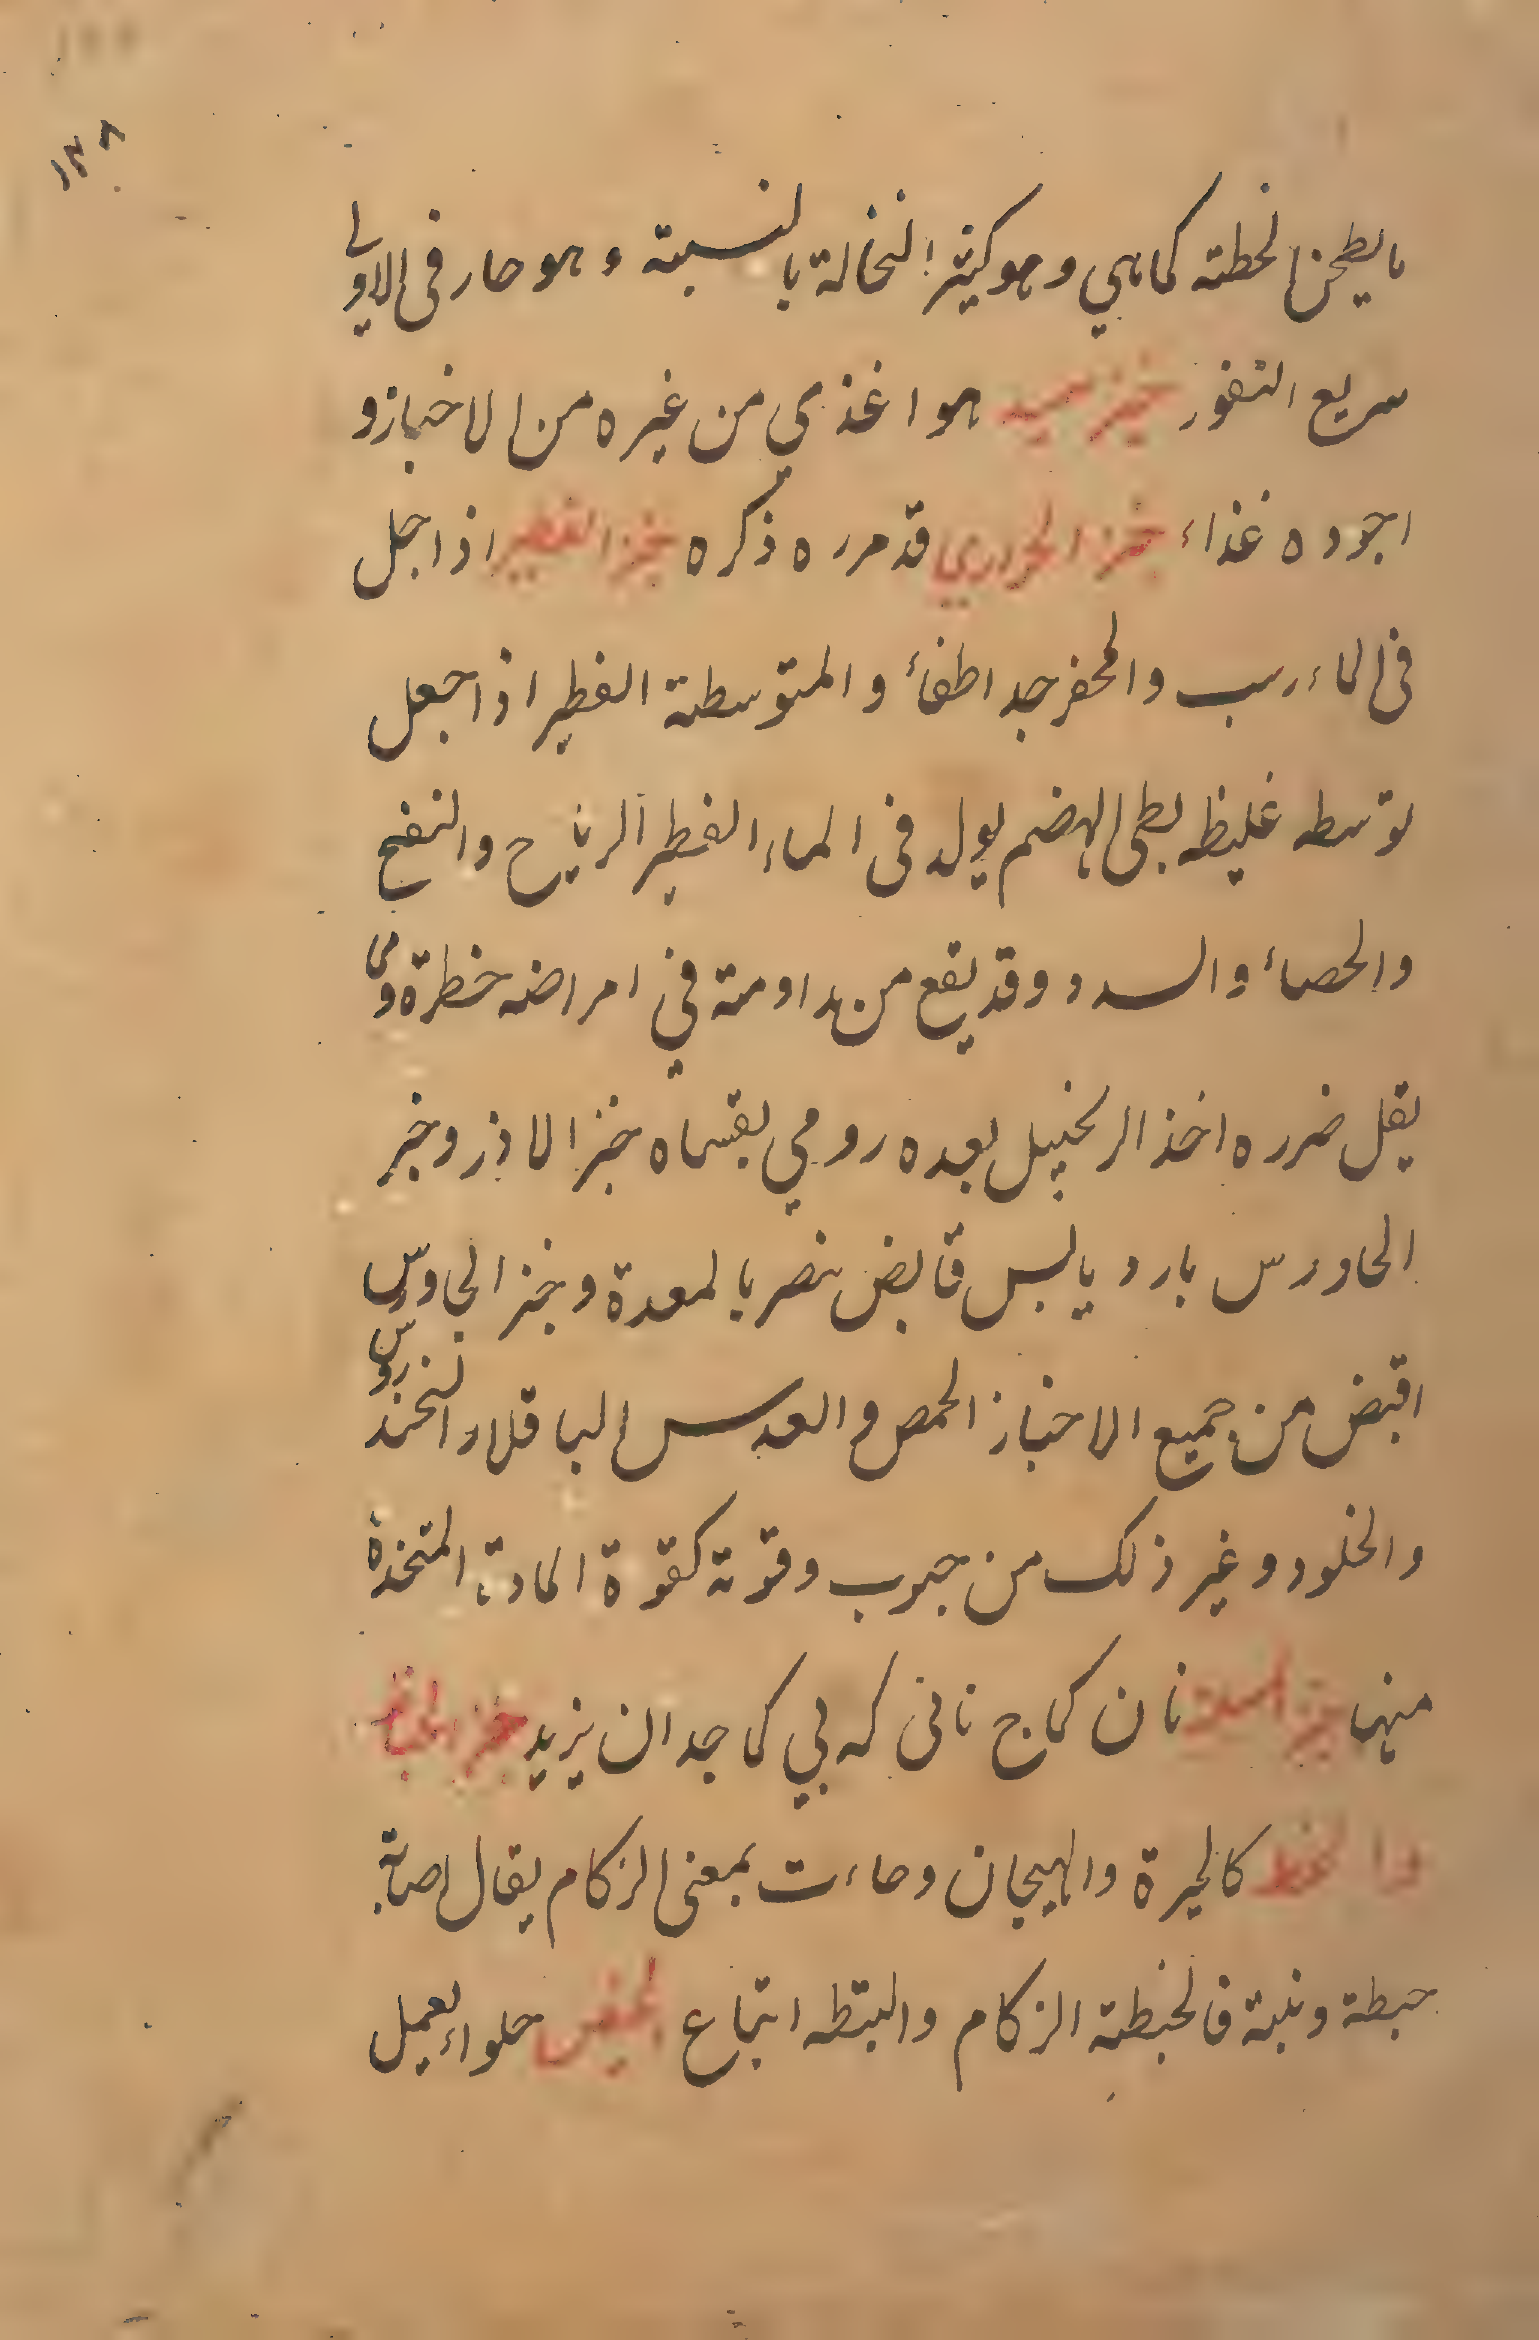 ١٣٨
ما يطحن الحنطته كماهي وهو كثير النخالة بالنسبته وهو حار فى الاولى
سريع النفور خبز سميد هو اغذي من غيره من الاخبازو
اجوده غذاء خبز الحواري قد مرره ذكره خبز الفطير اذا جل
فى الماء رسب والمخمر جدا طفأ والمتوسطة الفطير اذا جعل
توسطه غليظ بطى الهضم يولد فى الماء الفطير الرياح والنفخ
والحصأ والسدد وقد يقع من مداومته في امراضه خطرة ومى
يقل ضرره اخذ الزنجبيل بعده رومي بقسماه خبز الارز وخبز
الجاورس بارد يابس قابض ينضر بالمعدة وخبز الجاورس
اقبض من جميع الاخباز الحمص والعدس الباقلا و الخندروس
والخلود وغير ذلك من حبوب وقوته كقوة المادة المتخذة
منها خبز المله نان كماج نانى كه بي كاجدان يزيد خبز
كالحيرة والهيجان وجاءت بمعنى الزكام يقال اصابة
خبطة ونبتة فالخبطته الزكام والنبتطه اتباع الخبيص حلواء يعمل